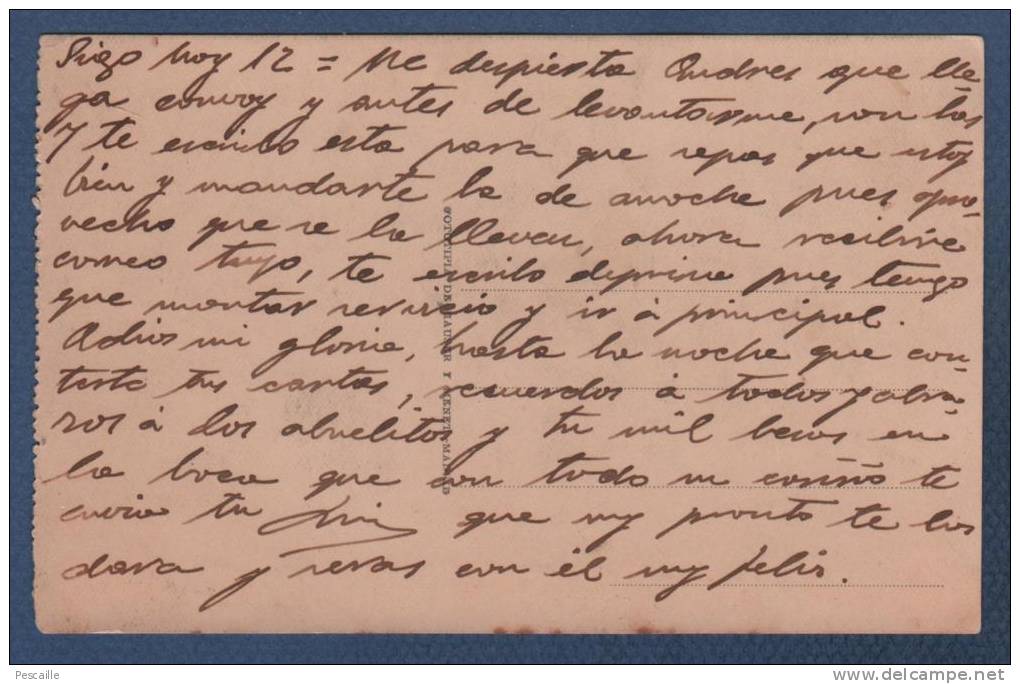 Sigo hoy 12 = Me despierta Andres que lle-
ga convoy y antes de levantarme, son las
7 te escribo esta para que sepas que estoy
bien y mandarte la de anoche pues apro-
vecho que se la llevan, ahora recibire
correo tuyo, te escribo deprisa pues tengo
que montar servicio y ir á principal.
Adios mi gloria, hasta la noche que con-
teste tus cartas, recuerdos á todos y abra-
zos á los abuelitos y tu mil besos en
la boca que con todo mi cariño te
envia tu que muy pronto te los
dara y seras con él muy feliz.
FOTOTIPIA DE HAUSER Y MENET.-MADRID
Pescaille
www.delcampe.net